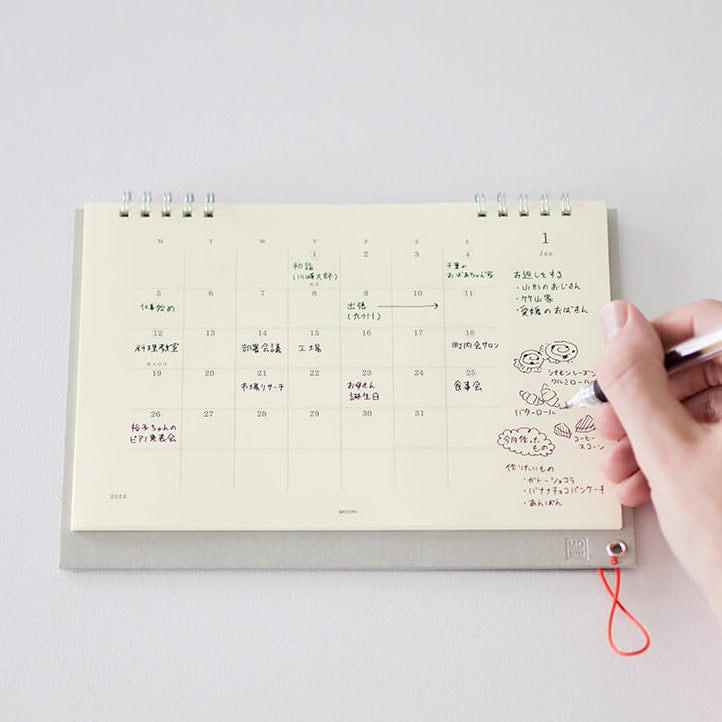 M T W T F S S
1
Jan
1 2 3 4
初詣
(川崎大師)
元日
千葉の
おばあちゃん家
5 6 7 8 9 10 11
仕事始め
出張
(九州)
12 13 14 15 16 17 18
料理教室
部署会議
工場
町内会サロン
成人の日
19 20 21 22 23 24 25
市場リサーチ
お母さん
誕生日
食事会
26 27 28 29 30 31
裕子ちゃんの
ピアノ発表会
お返しをする
・山形のおじさん
・竹山家
・愛媛のおばさん
シナモンレーズン
クルミロール
バターロール
コーヒー
スコーン
今月作った
もの
作りたいもの
・ガトーショコラ
・バナナチョコパンケーキ
・あんぱん
2026
MIDORI
MD